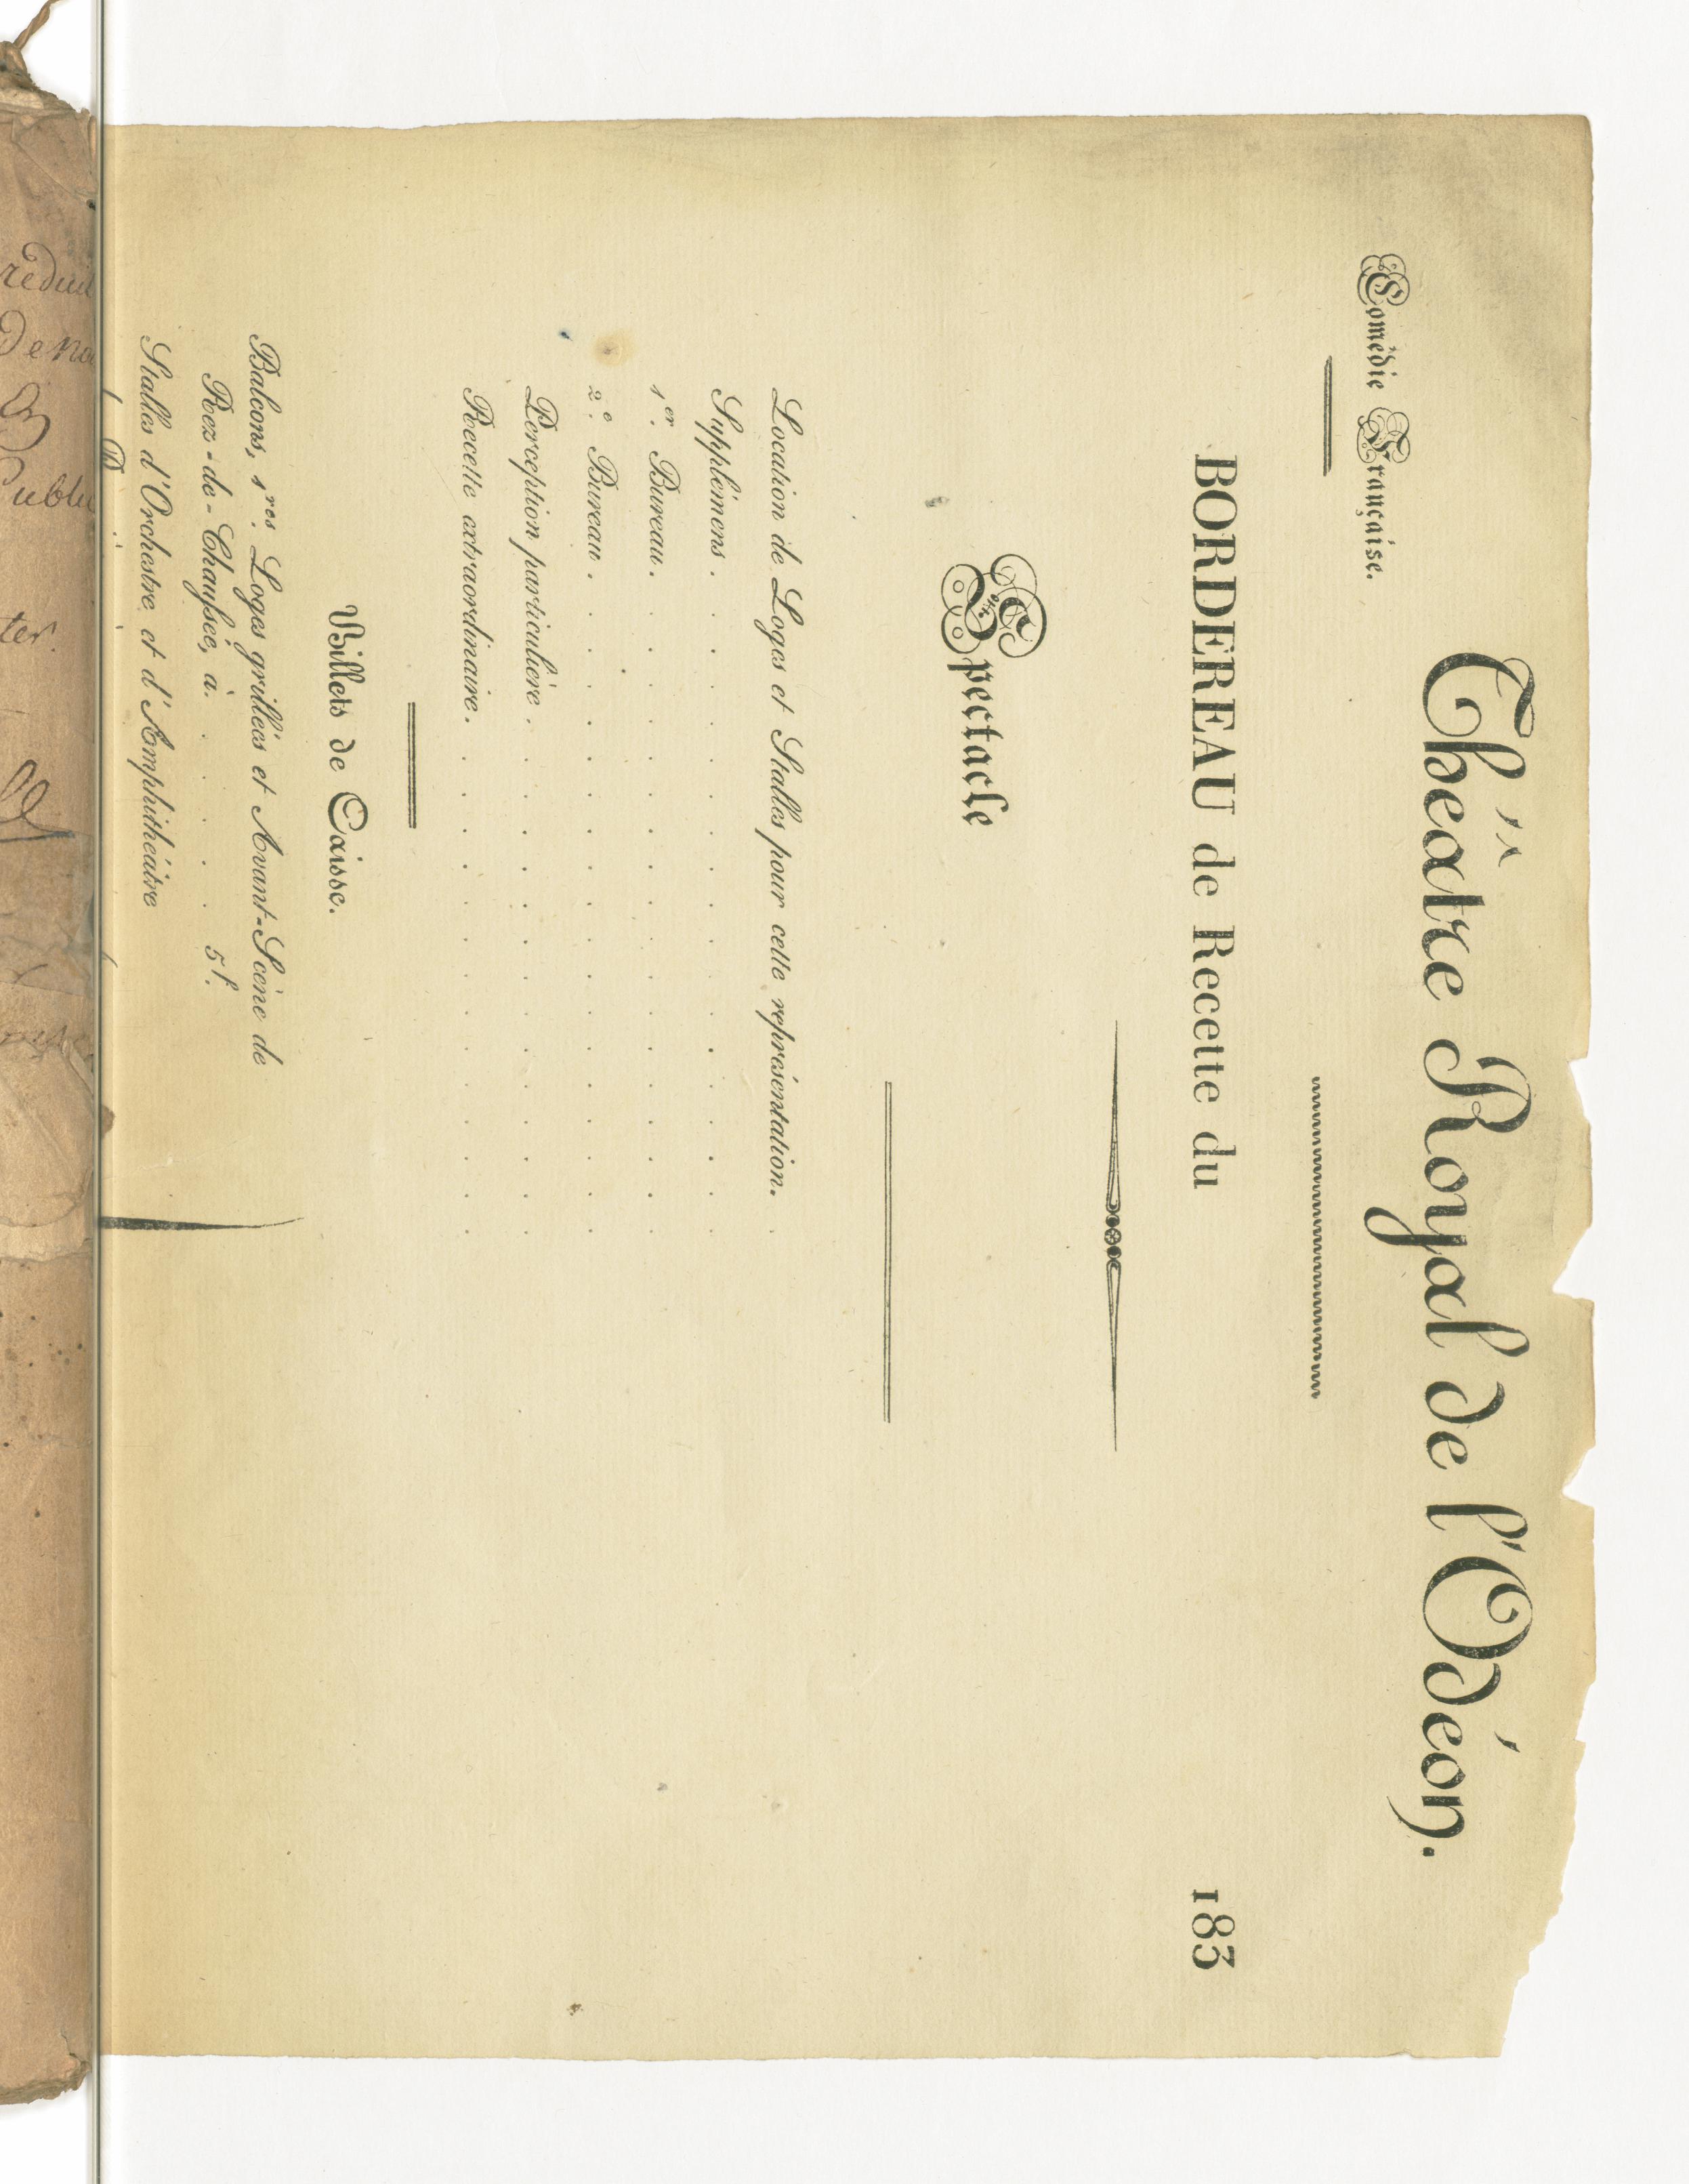 Théâtre Royal de l'Odéon.
Comédie Française.
BORDEREAU de Recette du 183
Spectacle
Location de Loges et Stalles pour cette représentation. .
Supplémens . . . . . . . . . . . . . . . .
1er. Bureau. . . . . . . . . . . . . . . . . .
2e. Bureau . . . . . . . . . . . . . . . . . . .
Perception particulière . . . . . . . . . . . . . . .
Recette extraordinaire. . . . . . . . . . . . . . .
Billets de Caisse.
Balcons, 1res. Loges grillées et Avant-Scène de
Rez-de-Chaussée, à. . . . . . . 5f.
Stalles d'Orchestre et d'Amphithéâtre